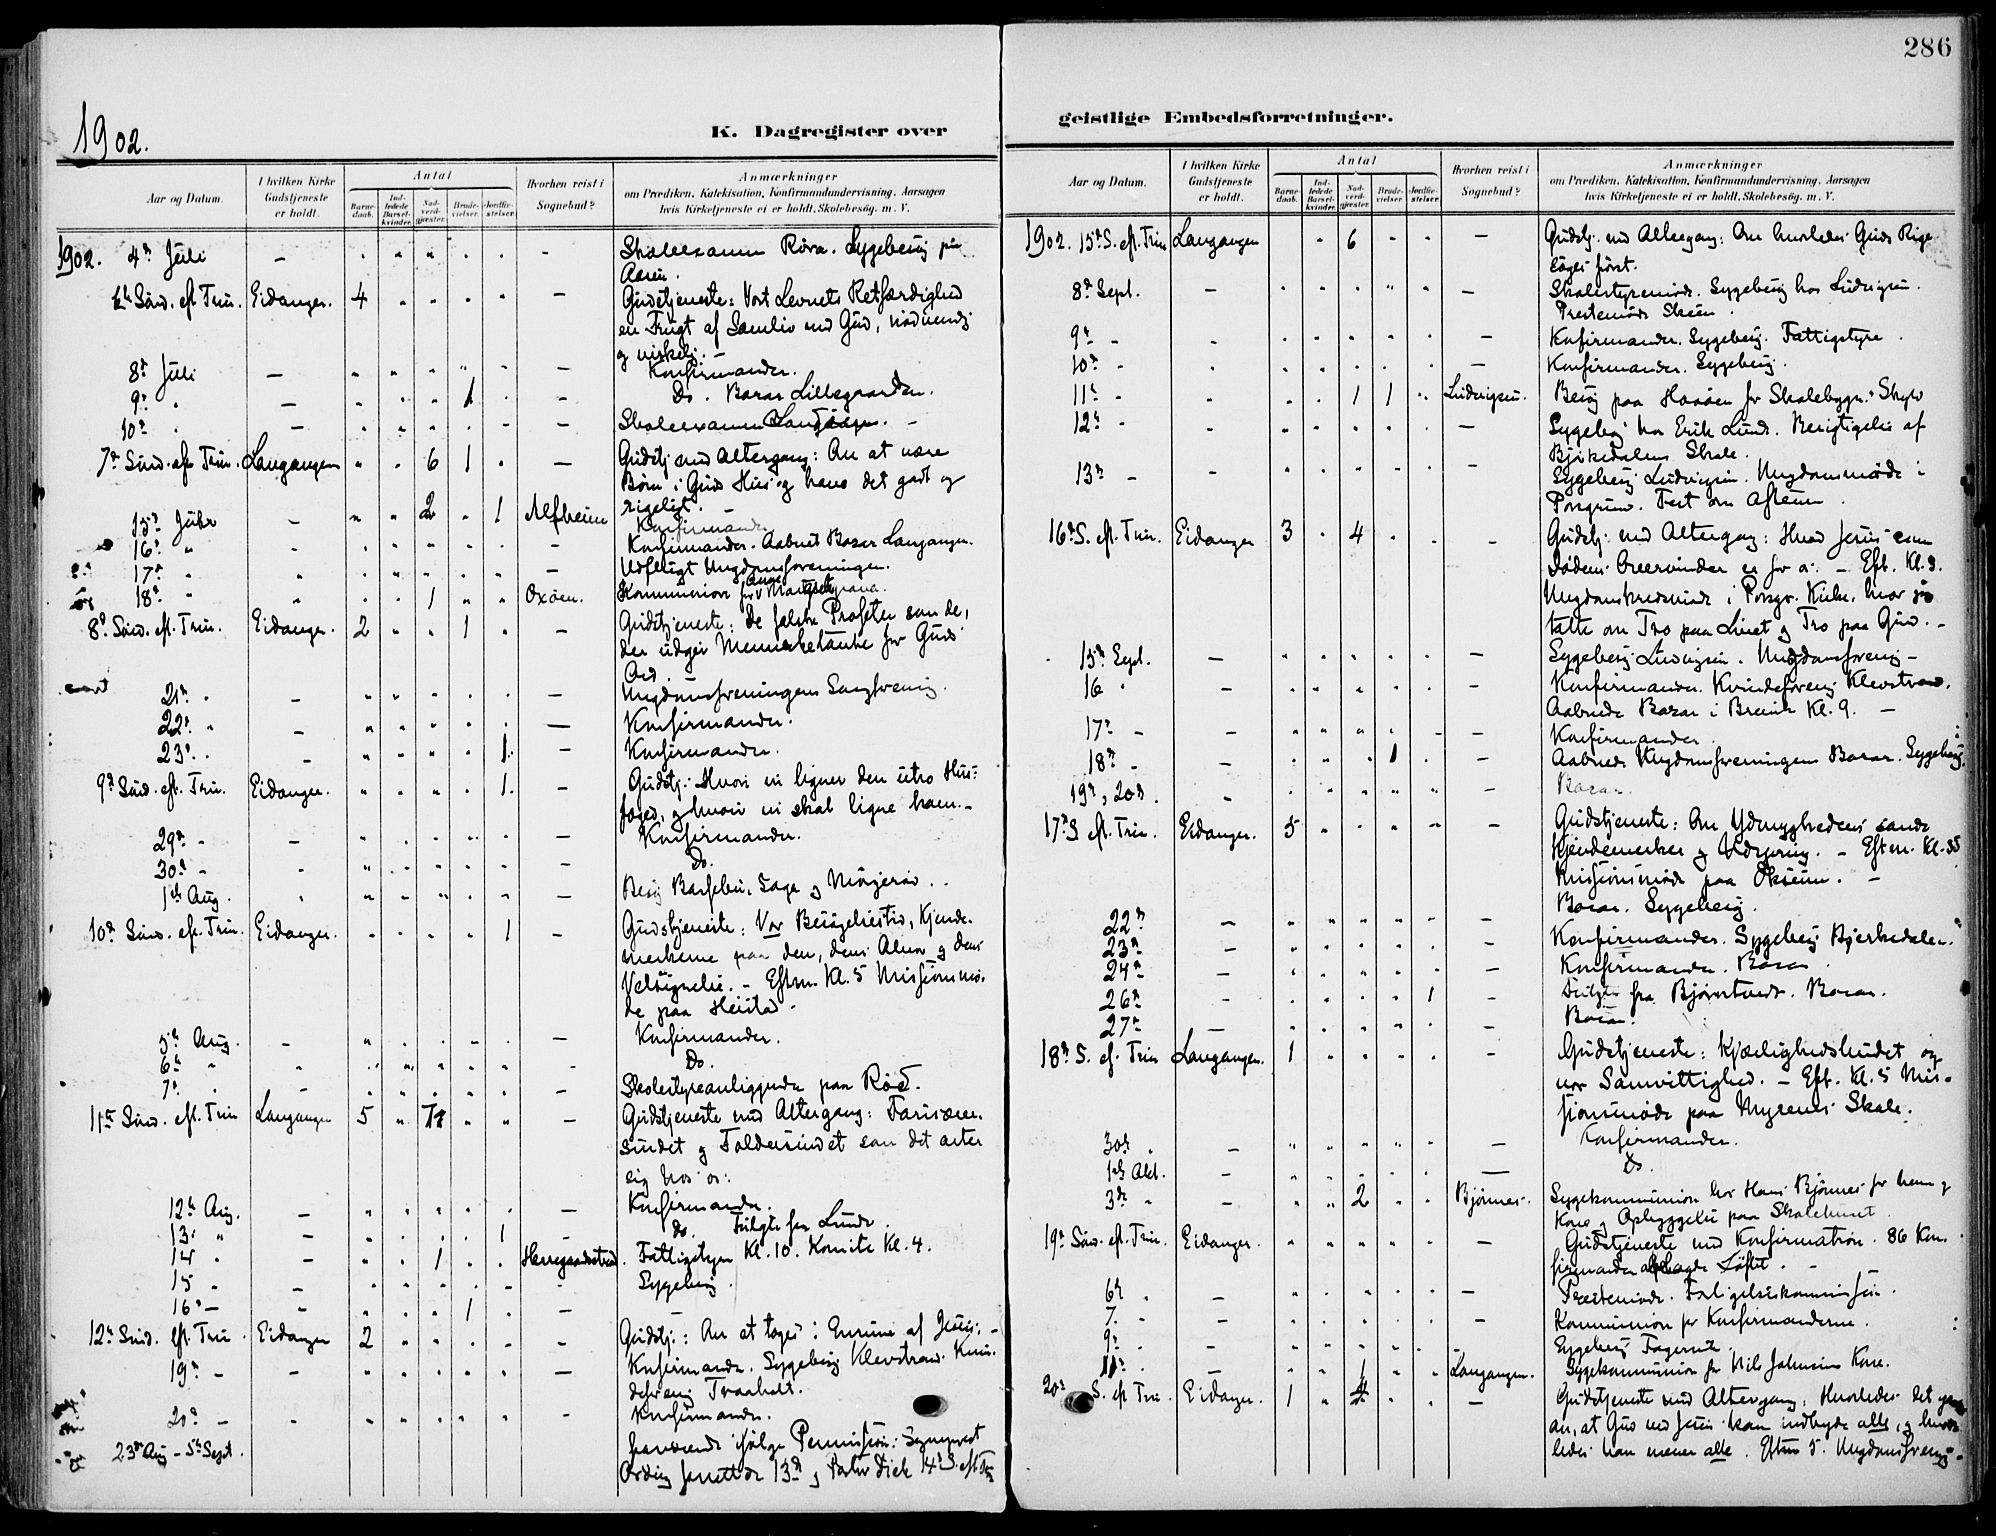 286
1902.
K. Dagregister over
geistlige Embedsforretninger.
Aar og Datum.
I hvilken Kirke Gudstjeneste er holdt.
Antal
Barne-daab.
Ind-ledede Barsel-kvinder.
Nad-verd-gjæster.
Brude-vielser.
Jordfæ-stelser.
Hvorhen reist i Sognebud?
Anmærkninger
om Prædiken, Katekisation, Konfirmandundervisning, Aarsagen
hvis Kirketjeneste ei er holdt, Skolebesög. m. V.
1902. 4de Juli - - Skoleexamen Röra. Sygebesög på
Aasen.
6te Sönd. eft. Trin. Eidanger. 4 - Gudstjeneste: Vort Levnets Retfærdighed
en Frugt af Samliv med Gud, nödvendig
og virkelig. -
8de Juli - - Konfirmander.
9de " - 1 - Do. Basar Lillegaarden.
10de " - - Skoleexamen Langangen. -
7de Sönd. eft. Trin. Langangen 6 1 - Gudstj med Altergang: Om at være
Börn i Guds Hus og have det godt og
rigeligt. -
15de Juli - 2 1 Alfheim Konfirmander
16de " - Konfirmander. Aabnet Basar Langangen.
17de " - Udflugt Ungdomsforeningen.
18de " 1 Oxöen. Kommunion for
8de Sönd. eft. Trin. Eidanger. 2 1 - Gudstjeneste: De falske Profeter som de,
der udgir Mennesketanke for Guds
Ord. -
21de " - - Ungdomsforeningens Sangforening.
22de " - - Konfirmander.
23de " - 1 - Konfirmander.
9de Sönd. eft. Trin. Eidanger. 1 - Gudstj: Hvori vi ligner den utro Hus-
foged, og hvori vi skal ligne ham. -
29de " - - Konfirmander.
30de " - - Do.
1ste Aug. - Besög
10de Sönd. eft. Trin. Eidanger. 1 - Gudstjeneste: Vor Besögelsestid, Kjende-
merkerne paa den, dens Alvor og dens
Velsignelse. - Efterm. Kl. 5 Missionsmö-
de paa Heistad.
5te Aug. - - Konfirmander.
6te " Do.
7de " - Skolestyreanliggende paa Röd.
11te Sönd. eft. Trin Langangen 5 - Gudstjeneste med Altergang: Farisæer-
sindet og Toldersindet som det arter
sig hos os.
12te Aug. - - Konfirmander.
13de " - 1 - do. Fulgte fra Lunde.
14de " - 1 Herregaardsstrand. Fattigstyre Kl. 10. Komite Kl. 4.
15 " - - Sygebesög.
16de - 1 -
12te Sönd. eft. Trin. Eidanger 2 - Gudstj.: Om at tages i Enrum af Jesus. -
19de - - - Konfirmander. Sygebesög Klevstrand. Kvin-
deforening Traaholt.
20de - - - Konfirmander.
23de Aug - 5te Sept. fraværende ifölge Permission: Sogneprest
Ording forrettede 13de og Pastor Dick 14de S. eft. Trin
1902. 15de S. eft. Trin Langangen 6 - Gudstj. med Altergang: Om hvorledes Guds Rige
söges först.
8de Sept. - - Skolestyremöde. Sygebesög hos Ludvigsen.
Prestemöde Skien.
9de - - Konfirmander. Sygebesög. Fattigstyre.
10de - - Konfirmander. Sygebesög.
11te - 1 1 Ludvigsen. Besög paa Haaöen for Skolebygn.
12te - - Sygebesög hos Erik Lund. Besigtigelse af
Bjerkedalens Skole.
13de - - Sygebesög Ludvigsen. Ungdomsmöde i
Porsgrund. Fest om Aftenen.
16de S. eft. Trin. Eidanger 3 4 - Gudstj. med Altergang: Hvad Jesus som
Dödens Overvinder er for os. - Eft. Kl. 3.
Ungdomskredsmöde i Porsgr. Kirke, hvor jeg
talte om Tro paa Livet og Tro paa Gud. -
15de Sept. - - Sygebesög Ludvigsen. Ungdomsforening -
16 " - - Konfirmander. Kvindeforening Klevstrand.
Aabnede Basar i Brevik Kl. 9. -
17de - - - Konfirmander.
18de - - 1 - Aabnede Ungdomsforeningens Basar. Sygebesög.
19de, 20de. - - Basar.
17de S eft. Trin. Eidanger. 5 - Gudstjeneste: Om Ydmyghedens sande
Kjendemerker og Udspring. - Efterm. Kl. 5
Missionsmöde paa -
22de - - Basar. Sygebesög.
23de - - Konfirmander. Sygebesög Bjerkedalen.
24de - - Konfirmander. Basar.
26de - 1 - Fulgte fra Bjørntvedt. Basar.
27de - - Basar.
18de S. ef. Trin Langangen. 1 - Gudstjeneste: Kjærlighedsbudet og
vor Samvittighed. - Eft. Kl. 5 Mis-
sionsmöde paa Myrenes Skole.
30de " - Konfirmander.
1ste Okt. - - Do.
3de " - 2 Björnnes. Sygekommunion hos Hans Björnnes for ham og
Kone og Opbyggelse paa Skolehuset.
19de Sönd. eft. Trin. Eidanger. - Gudstjeneste med Konfirmation. 86 Kon-
firmander aflagde Löftet. -
6te " - - Prestemöde. Forligelseskommission.
7. " - - Kommunion for Konfirmanderne.
9de - - Sygebesög
11te - 1 Langangen. Sygekommunion for Nils Johnsens Kone.
20de S. eft Trin. Eidanger. 1 4 - Gudstjeneste med Altergang: Hvorledes det gaar
an, at Gud ved Jesus kan indbyde alle, og hvor-
ledes han mener alle. Efterm 5. Ungdomsforening.